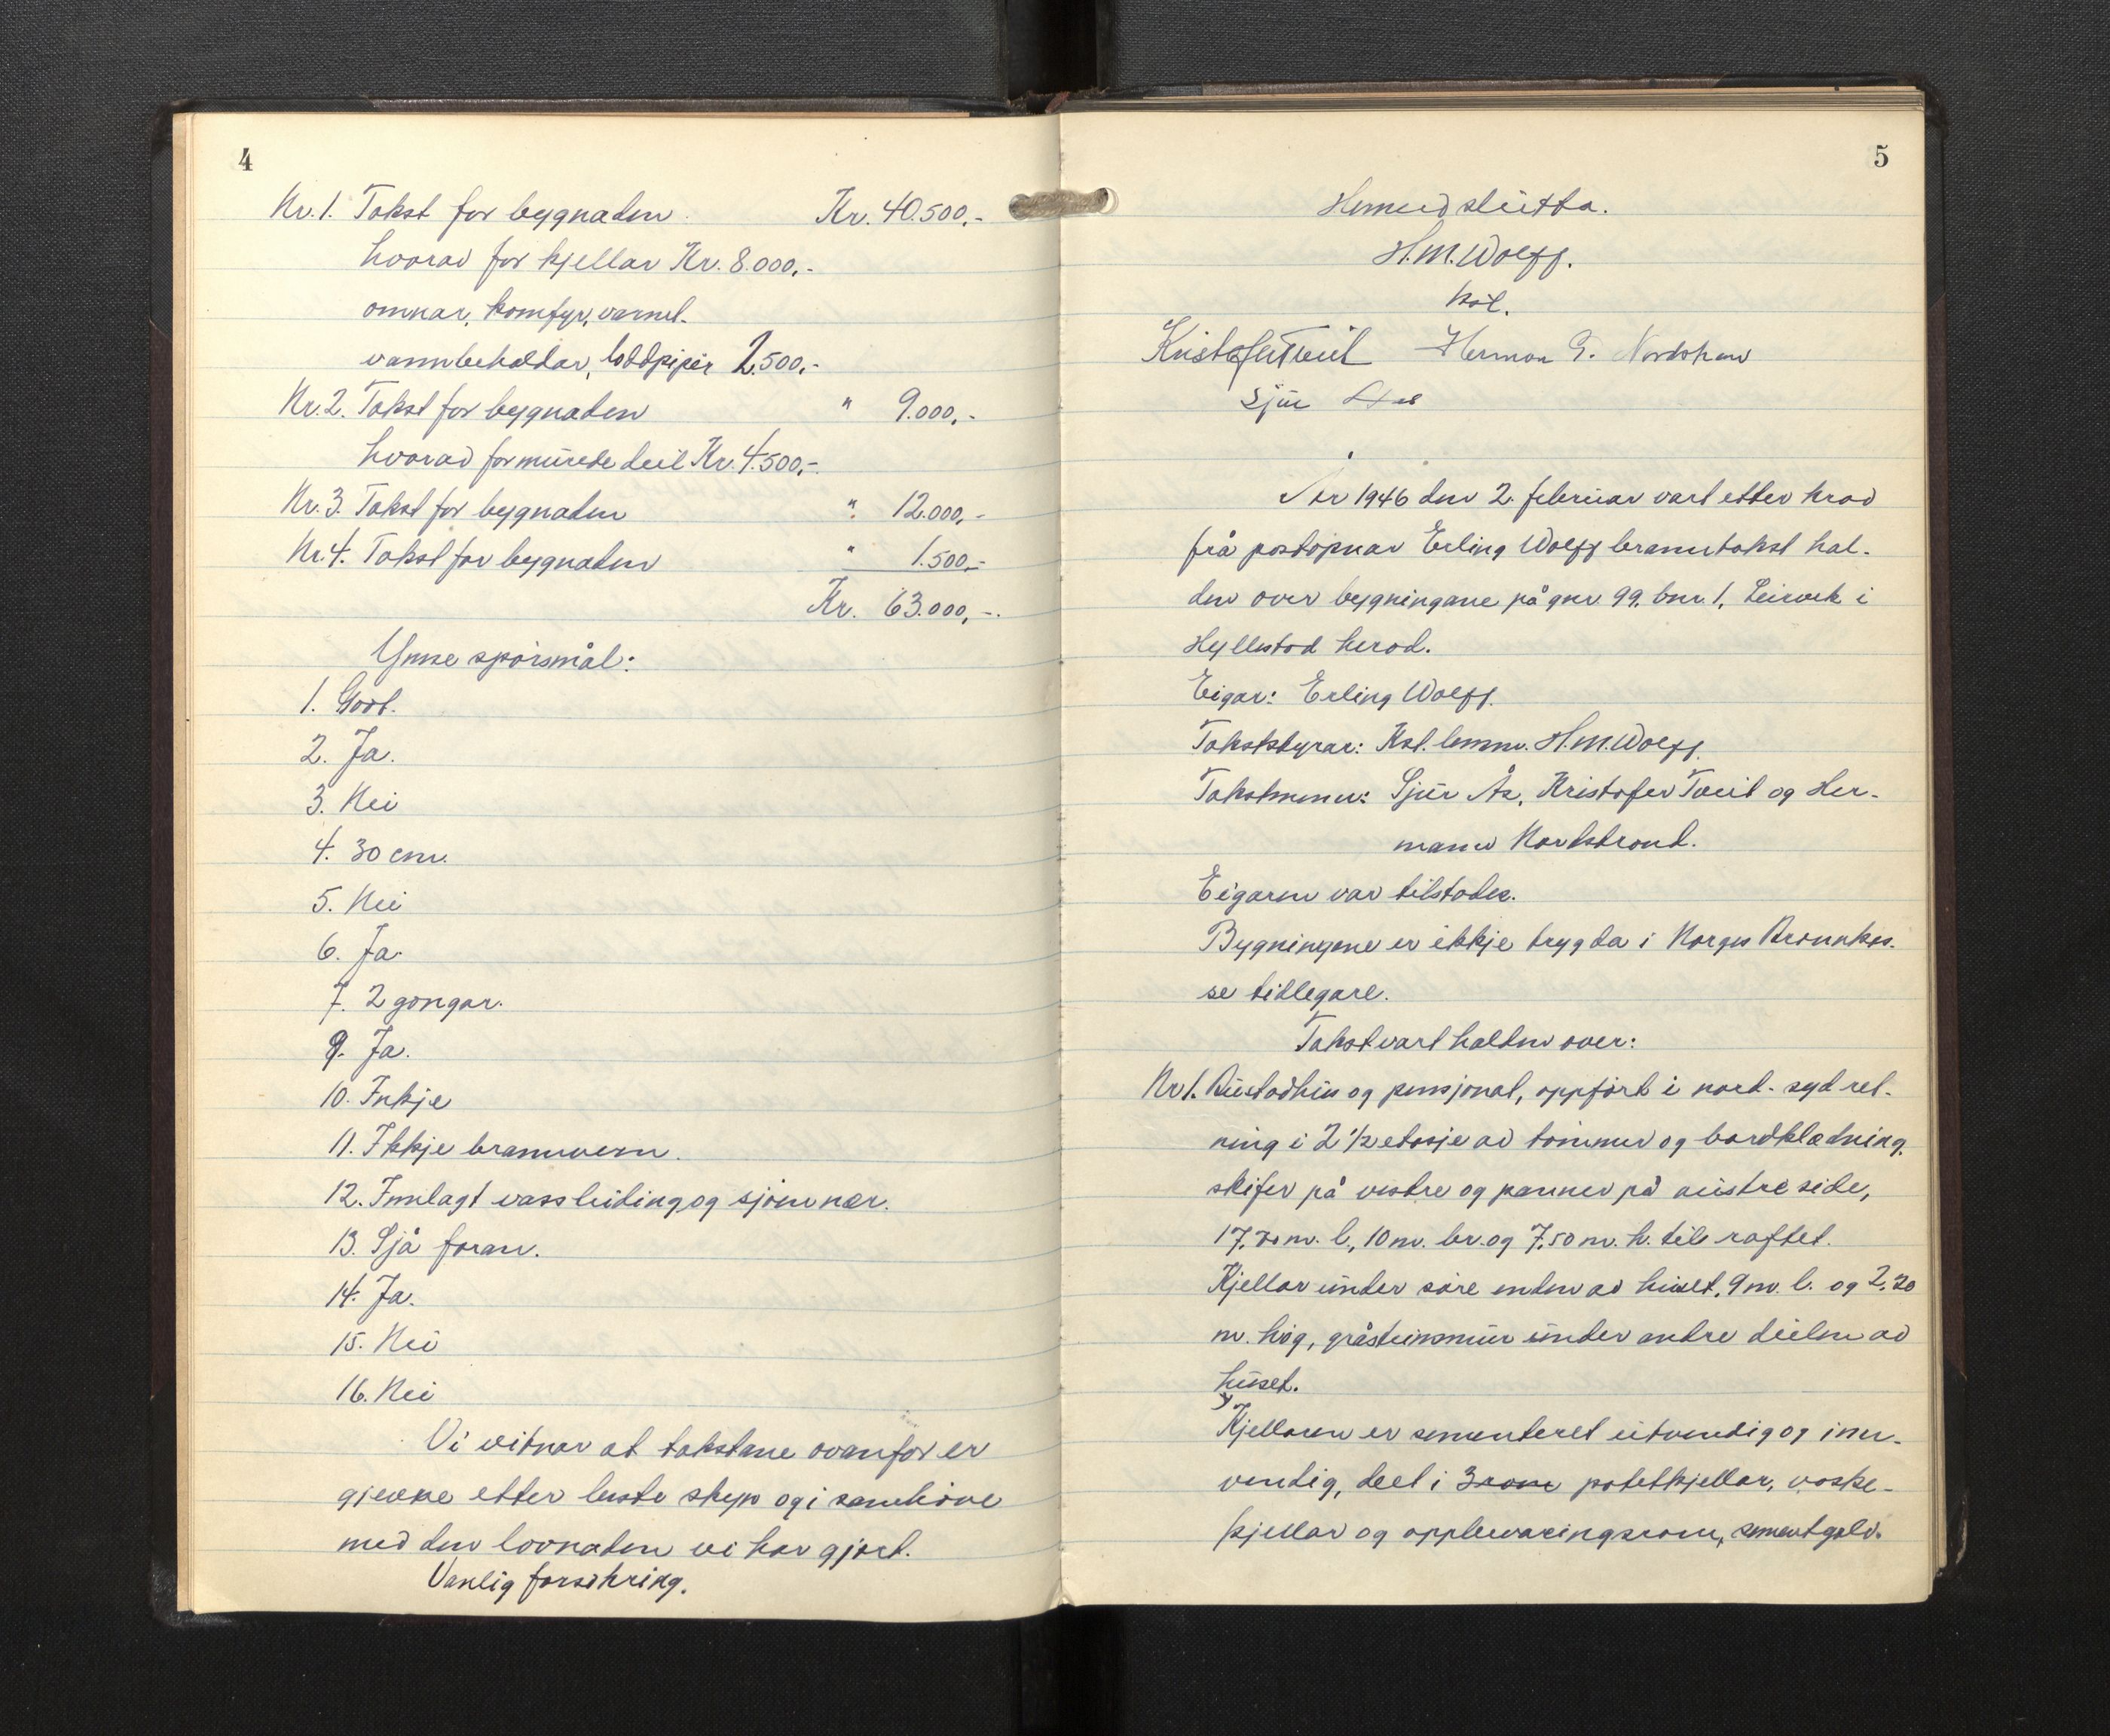 4
Nr. 1. Takst for bygnaden Kr. 40.500,-
hvorav for kjellar Kr. 8.000,-
omnar, komfyr, varmel.
vannbehaldar, loddpiper 2.500,-
Nr. 2. Takst for bygnaden " 9.000,-
hvorav for murede deil Kr. 4.500,-
Nr. 3. Takst for bygnaden " 12.000,-
Nr. 4. Takst for bygnaden " 1.500,-
Kr. 63.000,-.
Ymse spørsmål:
1. Godt.
2. Ja.
3. Nei
4. 30 cm.
5. Nei
6. Ja.
7. 2 gongar.
9. Ja.
10. Inkje
11. Ikkje brannvern.
12. Innlagt vassleiding og sjøen nær.
13. Sjå foran.
14. Ja.
15. Nei
16. Nei
Vi vitnar at takstane ovanfor er
gjevne etter beste skyn og i samhøve
med den lovnaden vi har gjort.
Vanlig forsikring.
5
Hermed slutta.
H.M. Wolff.
kst.
Kristofer Tveit Herman G. Nordstran
Sjur Aas
År 1946 den 2. februar vart etter krav
frå postopnar Erling Wolff branntakst hal-
den over bygningane på gnr 99, bnr. 1, Leirvik i
Hyllestad herad.
Eigar: Erling Wolff.
Takststyrar: Kst. lensm. H.M. Wolff.
Takstmenn: Sjur Ås, Kristofer Tveit og Her-
mann Nordstrand.
Eigaren var tilstades.
Bygningane er ikkje trygda i Norges Brannkas-
se tidlegare.
Takst vart halden over:
Nr 1. Bustadhus og pensjonat, oppført i nord-syd ret-
ning i 2 1/2 etasje av tømmer og bordklædning,
skifer på vestre og panner på austre side,
17,70 m. l., 10 m. br. og 7,50 m. h. til raftet.
Kjellar under søre enden av huset, 9 m. l. og 2,20
m. høg, gråsteinsmur under andre deilen av
huset.
Kjellaren er sementeret utvendig og inn-
vendig, deel i 3 rom potetkjellar, vaske-
kjellar og oppbevaringsrom, sementgolv.